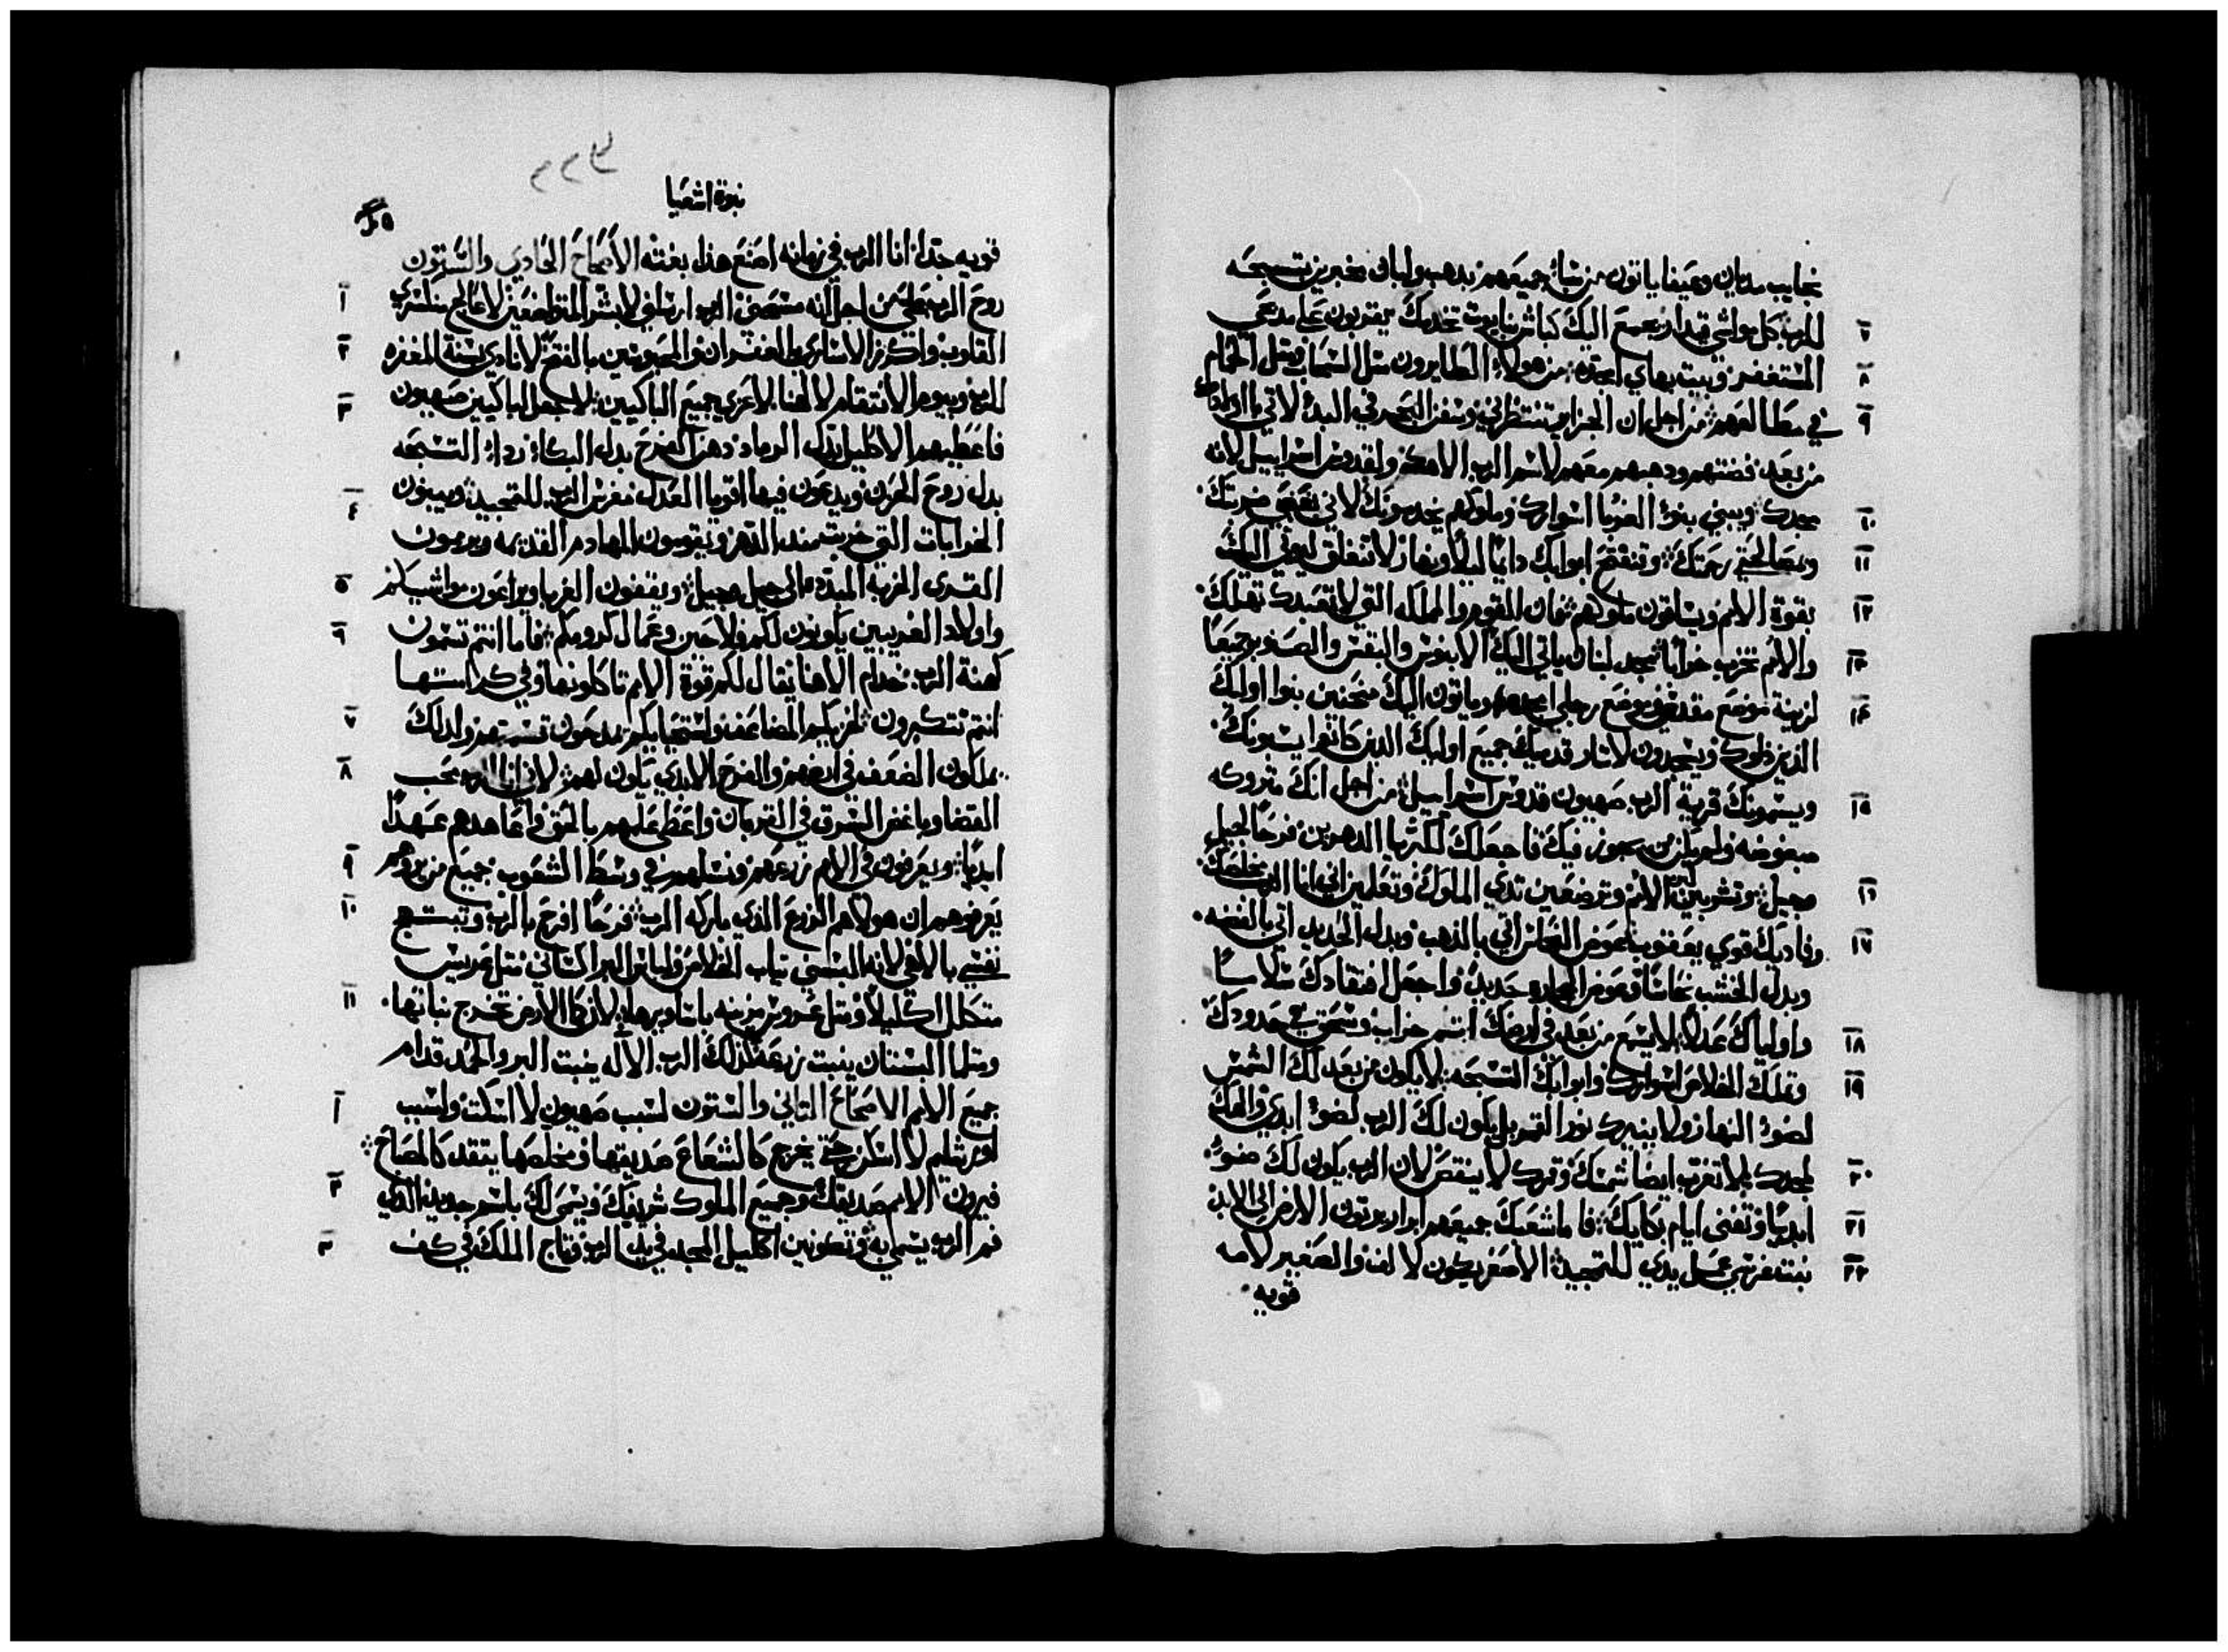 نجايب مديان وعيفا ياتون من شبا جميعهم بدهب ولبان مخبرين تسبحه
٧ للرب كل مواشي قيدار تجمع اليك كباش نبايوت تخدمك يقتربون على مدبحي
٨ المستغفر وبيت بهاي امجده من هولاء الطايرون متل السحاب ومتل الحمام
٩ في مطالعهم من اجل ان الجزاير تنتظرني وسفن البحر في البدء لاتي بابنايك
من بعد فضتهم ودهبهم معهم لاسم الرب الاهك ولقدوس اسراييل لانه
١٠ مجدك ويبني بنوا الغربا اسوارك وملوكهم يخدمونك لاني بغضبي ضربتك
١١ وبمصالحتي رحمتك وتنفتح ابوابك دايما ليلا ونهار لا تنغلق ليوتي اليك
١٢ بقوة الامم ويساقون ملوكهم فان القوم والمملكه التي لا تتعبد لك تهلك
١٣ والامم تخرب خرابا مجد لبنان ياتي اليك الابنوس والبقس والصنوبر جميعا
١٤ لزينة موضع مقدسي وموضع رجلي امجده وياتون اليك منحنين بنوا اوليك
الذين ذلوك ويسجدون لاثار قدميك جميع اوليك الدين كانوا يشتمونك
١٥ ويسمونك قرية الرب صهيون قدوس اسراييل من اجل انك متروكه
مبغوضه ولم يكن من يجوز فيك فاجعلك لكبريا الدهرين فرحا لجيل
١٦ وجيل وتشربين لبن الامم وترضعين تدي الملوك وتعلمين اني انا الرب مخلصك
١٧ وفاديك قوي يعقوب عوض النحاس اتي بالذهب وبدل الحديد اتي بالفضه
وبدل الخشب نحاسا وعوض الحجاره حديد واجعل افتقادك سلاما
١٨ واولياك عدلا لا يسمع من بعد في ارضك اسم خراب وسحق في حدودك
١٩ وتملك الخلاص اسوارك وابوابك التسبحه لا يكون من بعد لك الشمس
لضوء النهار ولا ينيرك نور القمر بل يكون لك الرب لضوء ابدي والهك
٢٠ لمجدك لا تغرب ايضا شمسك وقمرك لا ينقص لان الرب يكون لك ضوء
٢١ ابديا وتفنى ايام بكايك فاما شعبك جميعهم ابرار يرتون الارض الى الابد
٢٢ نبت غرسي عمل يدي للتمجيد الاصغر يكون لالف والصغير لامه
قويه
نبوة اشعيا
قويه جدا انا الرب في زمانه اصنع هذا بغتة الاصحاح الحادي والستون
١ روح الرب علي من اجل انه مسحني الرب ارسلني لابشر المتواضعين لاعالج منكسري
٢ القلوب واكرز للاسارى بالغفران والمحبوسين بالفتح لانادي بسنة المغفره
٣ للرب وبيوم الانتقام لالهنا لاعزي جميع الباكيين لاجعل لباكيين صهيون
فاعطيهم الاكليل بدل الرماد دهن الفرح بدل البكاء رداء التسبحه
بدل روح الحزن ويدعون فيها اقويا العدل مغرس الرب للتمجيد ويبنون
٤ الخرابات التي خربت منذ الدهر ويقومون المهادم القديمه ويرمون
٥ القرى الخربه المبدده الى جيل وجيل ويقفون الغربا ويراعون مواشيكم
٦ واولاد الغريبين يكونون لكم فلاحين وعمال كرومكم فاما انتم تسمون
كهنة الرب خدام الاهنا يقال لكم قوة الامم تاكلونها وفي كرامتها
٧ انتم تتكبرون لخزيكم المضاعف واستحيايكم يمدحون قسمتهم ولدلك
٨ يملكون الضعف في ارضهم والفرح الابدي يكون لهم لاني انا الرب محب
القضا وباغض السرق في القربان واعطي عملهم بالحق واعاهدهم عهدا
٩ ابديا ويعرفون في الامم زرعهم ونسلهم في وسط الشعوب جميع من يروهم
١٠ يعرفوهم ان هولاء هم الزرع الذي باركه الرب فرحا افرح بالرب وتبتهج
نفسي بالاهي لانه البسني تياب الخلاص ولباس البر اكساني متل عريس
١١ متكلل اكليلا ومتل عروس مزينه باساورها لان كما الارض تخرج نباتها
ومتلما البستان ينبت زرعه كذلك الرب الاله ينبت البر والحمد قدام
١ جميع الامم الاصحاح التاني والستون لسبب صهيون لا اسكت ولسبب
اورشليم لا اسكن حتى يخرج كالشعاع صديقها ومخلصها يتقد كالمصباح
٢ فيرون الامم صديقك وجميع الملوك شريفك ويسمى لك باسم جديد الذي
٣ فم الرب يسمي به وتكونين اكليل المجد في يد الرب وتاج الملك في كف